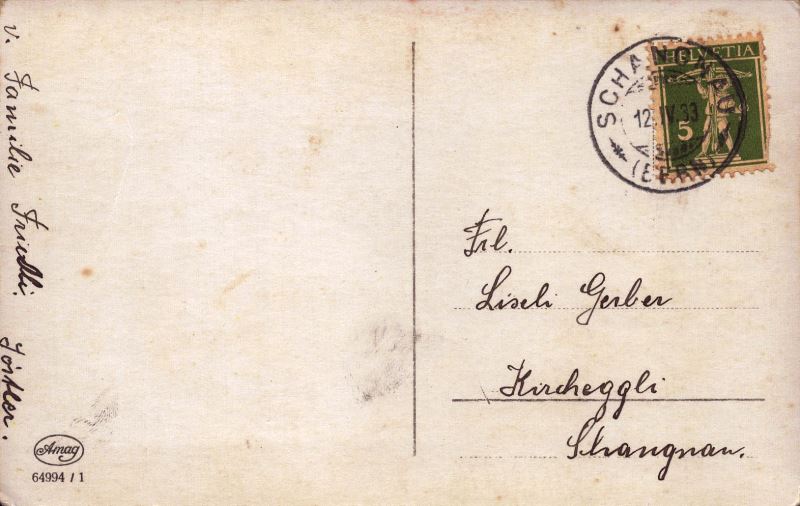 v. Familie Friedli. Förster.
HELVETIA
5
SCHANGNAU
12.IV.33
(BERN)
Frl.
Liseli Gerber
Kircheggli
Schangnau.
Amag
64994 / 1